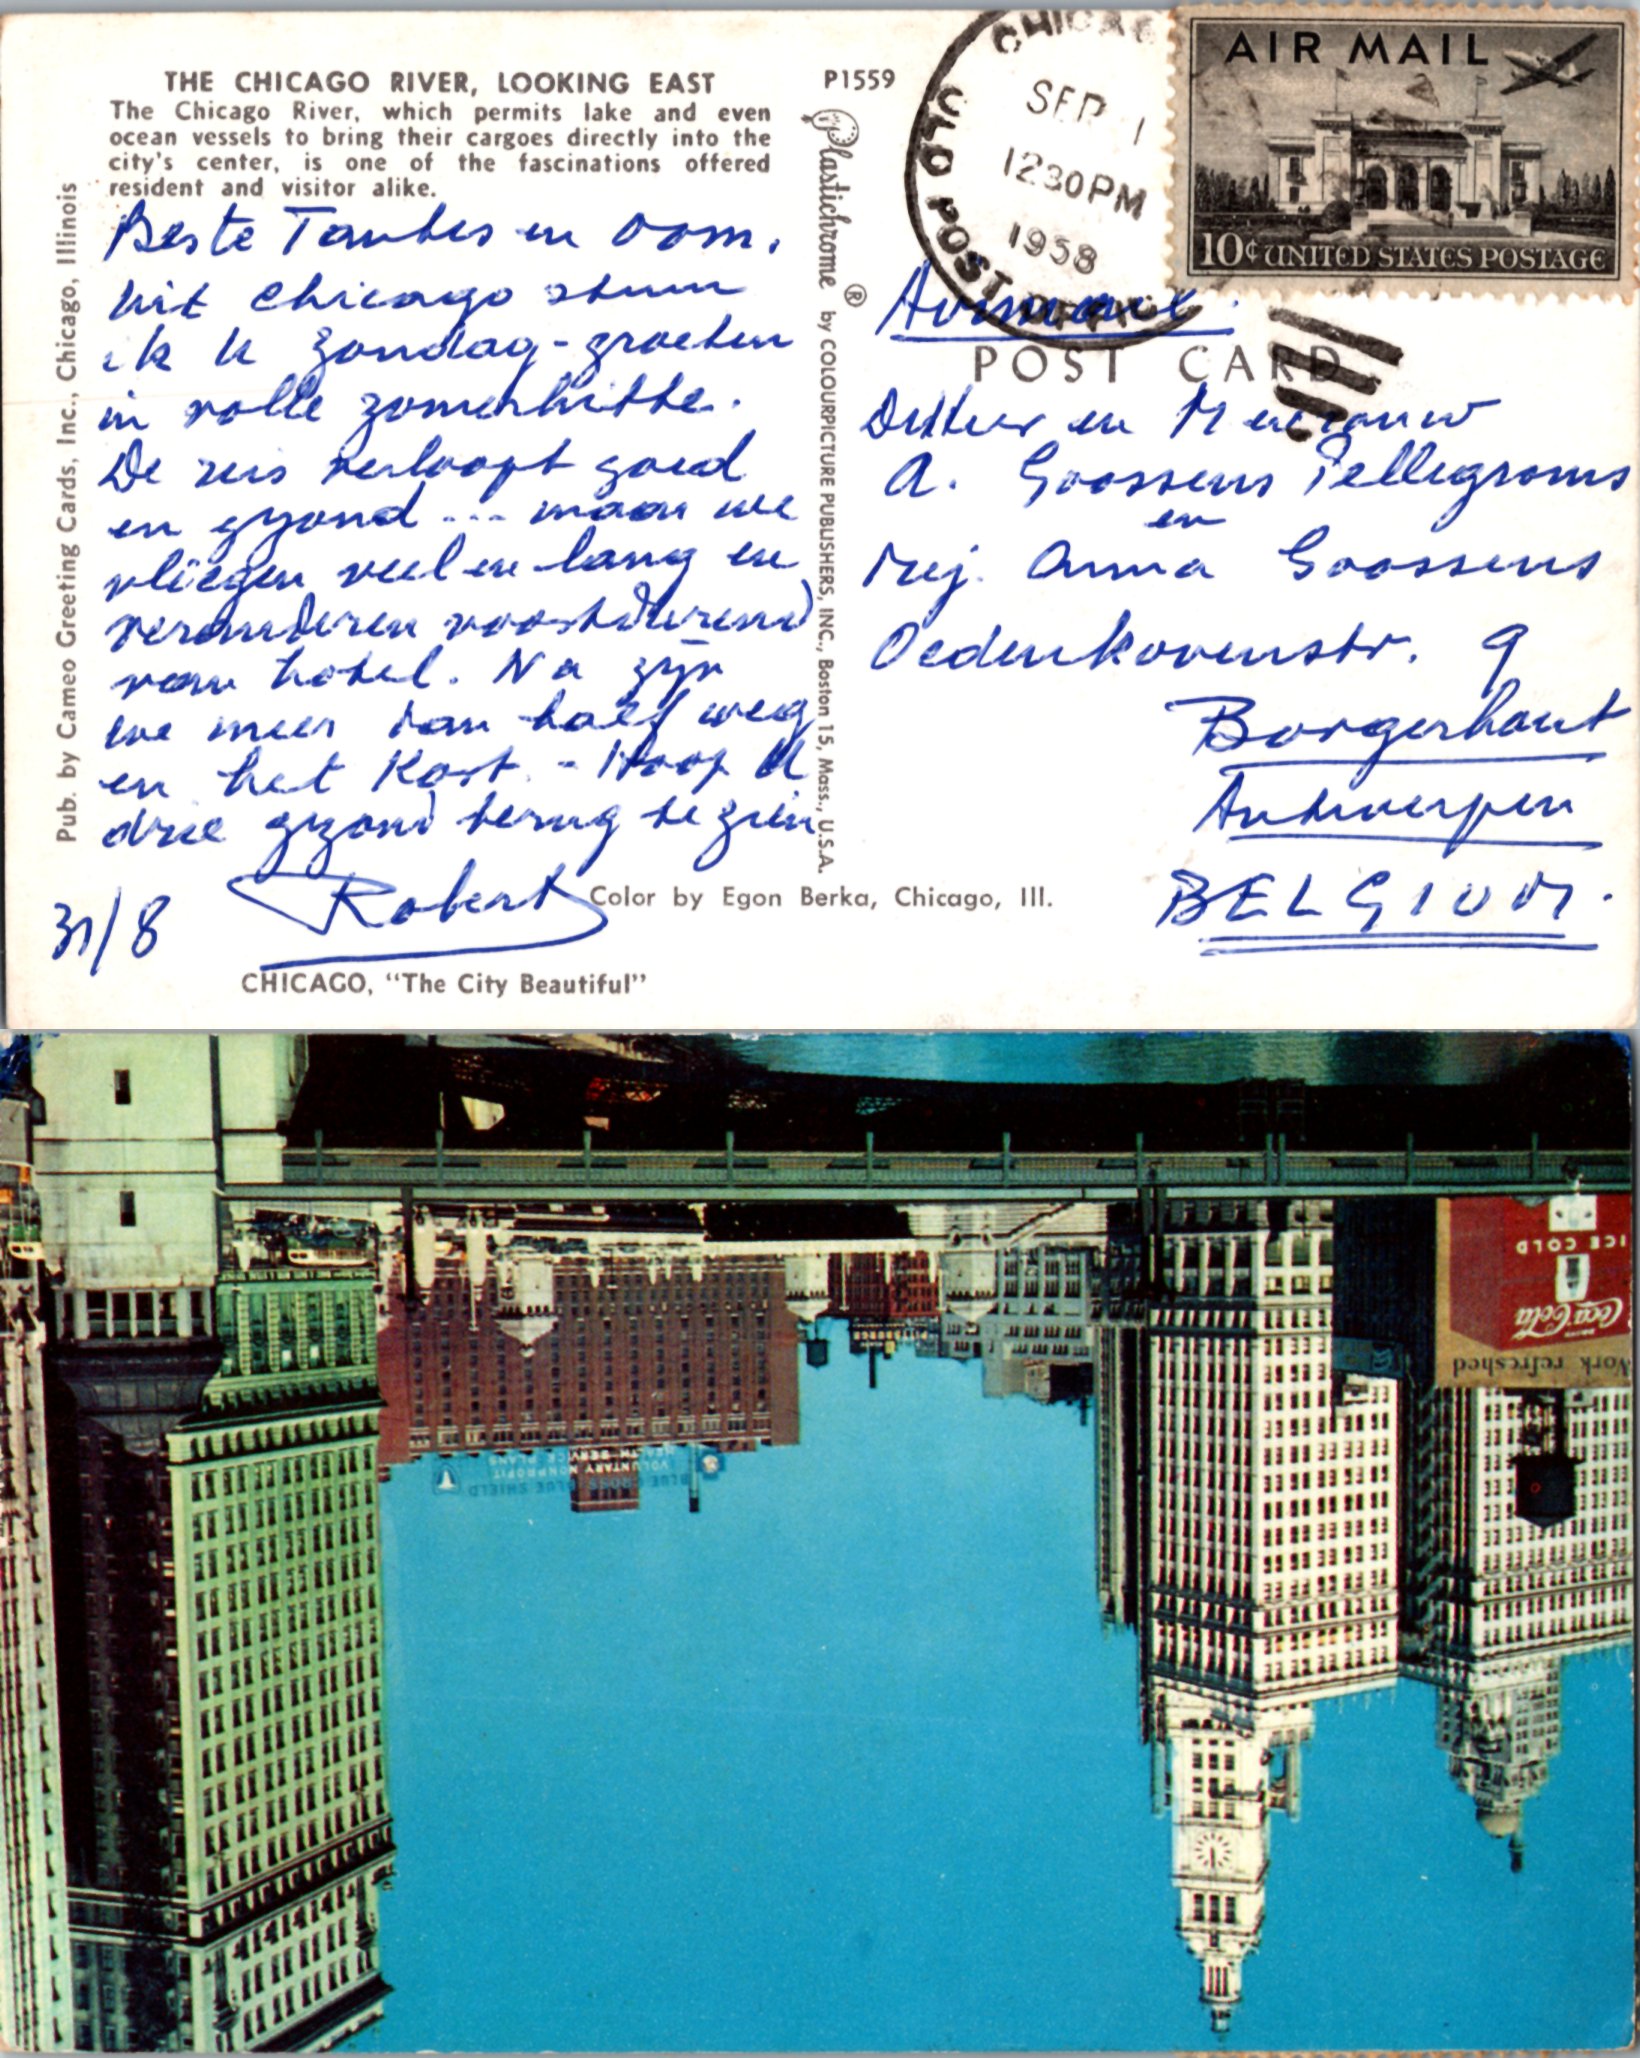 THE CHICAGO RIVER, LOOKING EAST
The Chicago River, which permits lake and even
ocean vessels to bring their cargoes directly into the
city's center, is one of the fascinations offered
resident and visitor alike.
Beste Tantes en Oom,
Uit Chicago stuur
ik U zondag-groeten
in volle zomerhitte.
De reis verloopt goed
en gezond ... maar we
vliegen veel en lang en
veranderen voortdurend
van hotel. Na zijn
we meer dan half weg
en het kort. - Hoop U
drie gezond terug te zien
Robert
31/8
Pub. by Cameo Greeting Cards, Inc., Chicago, Illinois
CHICAGO, "The City Beautiful"
P1559
Plastichrome ® by COLOURPICTURE PUBLISHERS, INC., Boston 15, Mass., U.S.A.
Color by Egon Berka, Chicago, Ill.
CHICAG
SEP 1
1230PM
1958
OLD POST
AIR MAIL
10¢ UNITED STATES POSTAGE
POST CARD
en Mevrouw
A. Goossens Pellegroms
en
Mej. Anna Goossens
Oedenkovenstr. 9
Borgerhout
Antwerpen
BELGIUM.
ICE COLD
DRINK
Coca Cola
Work refreshed
PITTSBURGH
BLUE CROSS BLUE SHIELD
VOLUNTARY NONPROFIT
HEALTH SERVICE PLANS